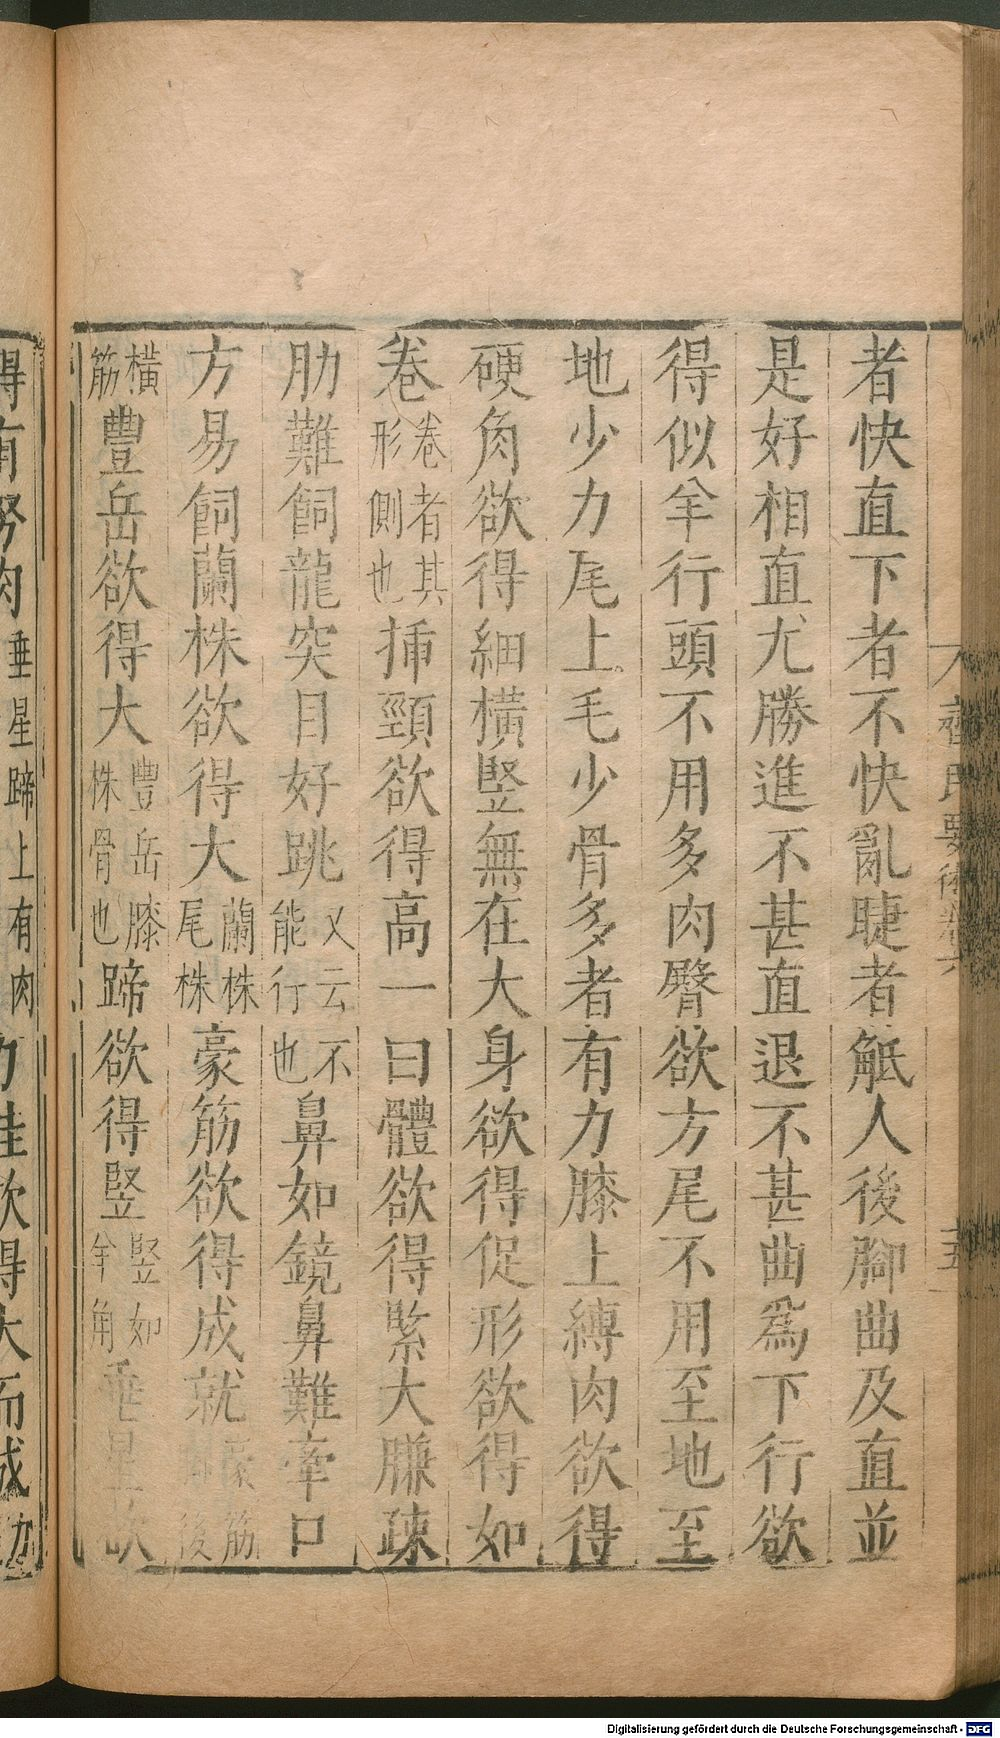 者快直下者不快亂睫者觝人後腳曲及直並
是好相直尤勝進不甚直退不甚曲爲下行欲
得似羊行頭不用多肉臀欲方尾不用至地至
地少力尾上毛少骨多者有力膝上縛肉欲得
硬角欲得細橫竪無在大身欲得促形欲得如
卷卷者其形側也揷頸欲得高一曰體欲得緊大膁疎
肋難飼龍突目好跳又云不能行也鼻如鏡鼻難牽口
方易飼蘭株欲得大蘭株尾株豪筋欲得成就豪筋後
橫筋豐岳欲得大豐岳膝株骨也蹄欲得竪竪如羊角垂星欲
得有努肉垂星蹄上有肉力柱欲得大而成
齊民要術卷六
十五
Digitalisierung gefördert durch die Deutsche Forschungsgemeinschaft - DFG